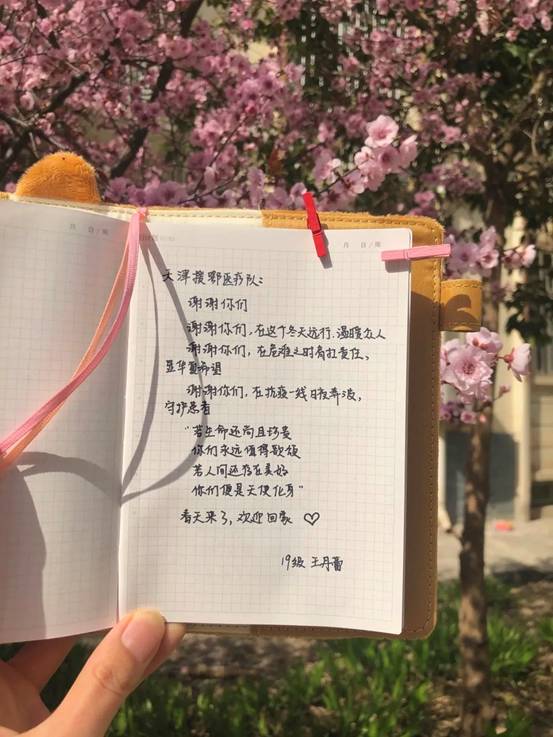 月 日/周
月 日/周
天津援鄂医疗队:
谢谢你们
谢谢你们,在这个冬天远行.温暖众人
谢谢你们,在危难之时肩扛责任,
显华夏希望
谢谢你们,在抗疫一线日夜奔波,
守护患者
“若生命还尚且珍贵
你们永远值得歌颂
若人间还存在美好
你们便是天使化身”
春天来了,欢迎回家 ♡
19级 王丹蕾